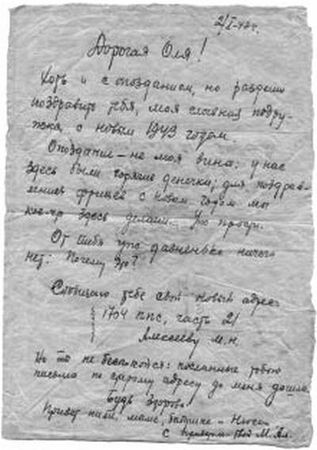 2/I-43 г.
Дорогая Оля!
Хоть и с опозданием, но разреши
поздравить тебя, моя славная подру-
жка, с новым 1943 годом.
Опоздание – не моя вина: у нас
здесь были горячие денёчки; для поздрав-
ления фрицев с новым годом мы
здесь делали
От тебя уже давненько ничего
нет: Почему это?
Сообщаю тебе свой новый адрес
1704 ппс, часть 21
Алексееву М.Н.
Но ты не беспокойся: посланные тобою
письма по старому адресу до меня дошли.
Будь здорова
Привет маме,
с твой М. Ал.